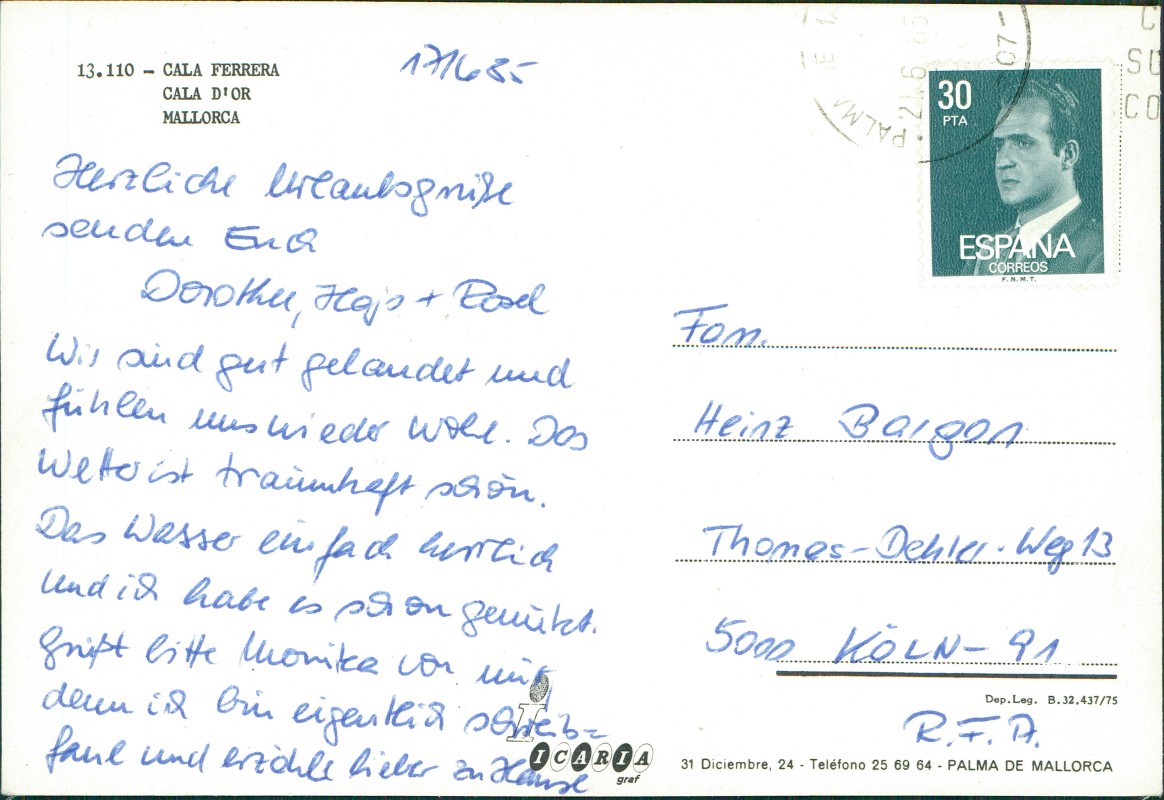 13.110 – CALA FERRERA
CALA D'OR
MALLORCA
17/6 85
Herzliche Urlaubsgrüße
senden Euch
Dorothee, Hajo + Rosel
Wir sind gut gelandet und
fühlen uns wieder wohl. Das
Wetter ist traumhaft schön.
Das Wasser einfach herrlich
und ich habe es schon genützt.
Grüßt bitte Monika von mir,
denn ich bin eigentlich schreib=
faul und erzähle lieber zu Hause
ICARIA
graf
PALMA DE
21.6
07–
C
SU
CO
30
PTA
ESPAÑA
CORREOS
F.N.M.T.
Fam.
Heinz Bargon
Thomas-Dehler-Weg 13
5000 KÖLN-91
Dep.Leg. B.32.437/75
R.F.A.
31 Diciembre, 24 - Teléfono 25 69 64 - PALMA DE MALLORCA